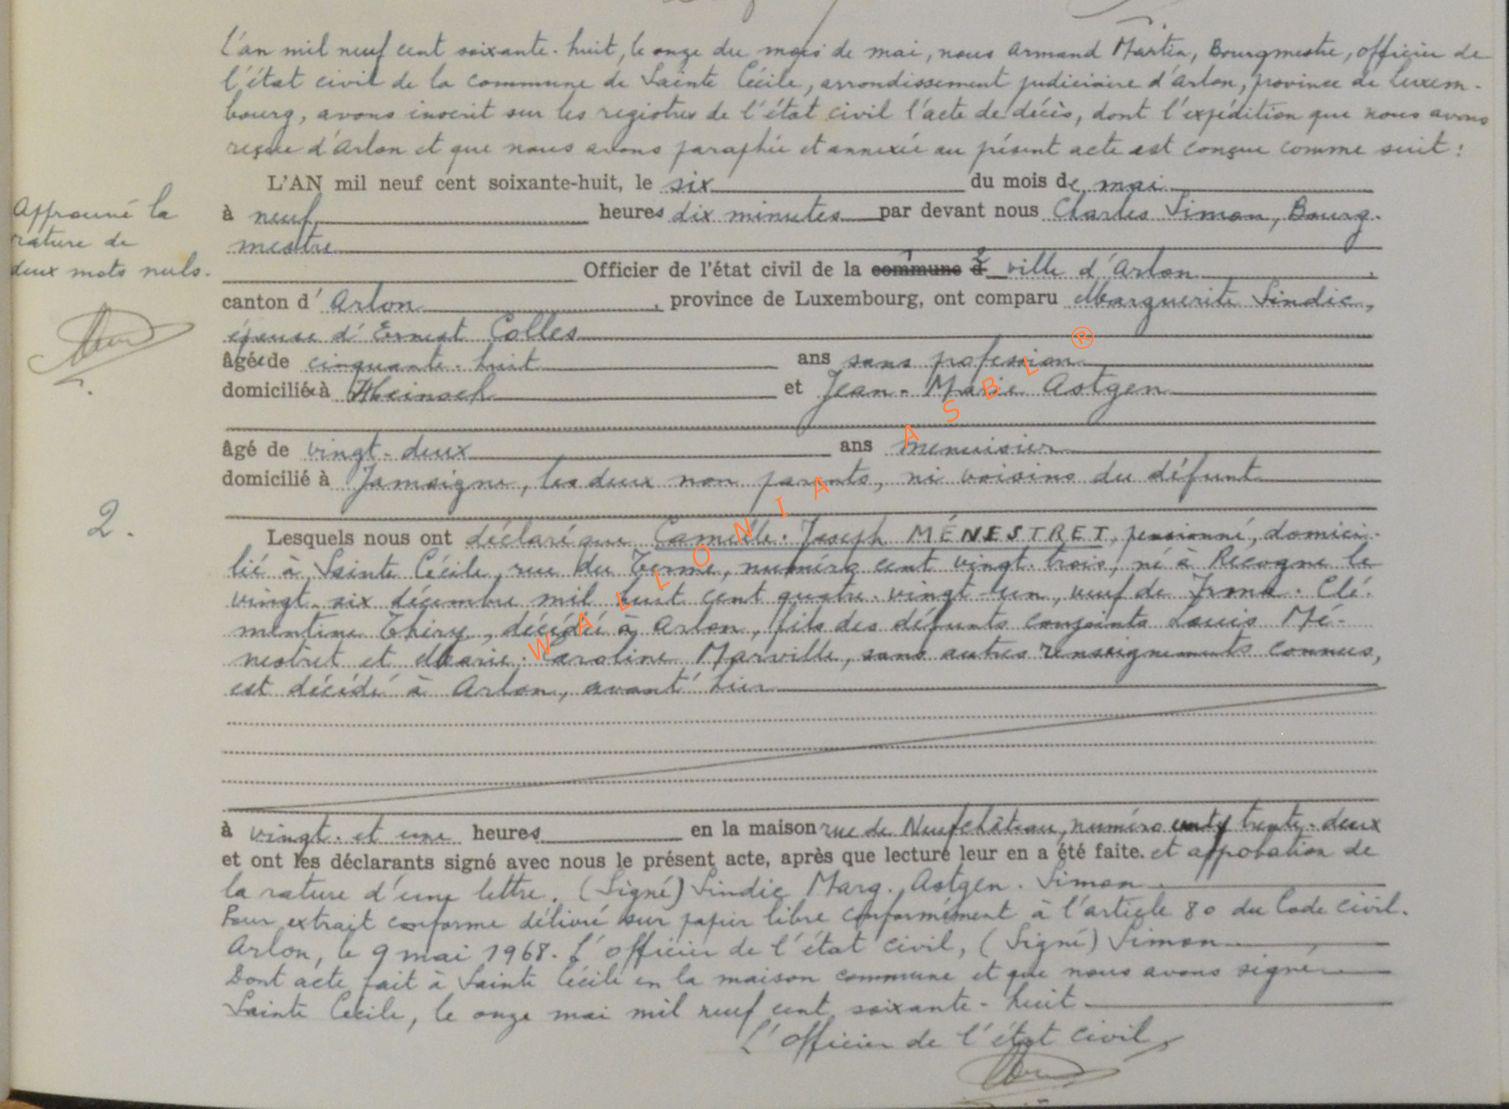 L'an mil neuf cent soixante-huit, le onze du mois de mai, nous Armand Martin, Bourgmestre, officier de
l'état civil de la commune de Sainte Cécile, arrondissement judiciaire d'Arlon, province de Luxem-
bourg, avons inscrit sur les registres de l'état civil l'acte de décès, dont l'expédition que nous avons
reçue d'Arlon et que nous avons paraphée et annexée au présent acte est conçue comme suit :
L'AN mil neuf cent soixante-huit, le six du mois de mai
Approuvé la
rature de
deux mots nuls.
à neuf heures dix minutes par devant nous Charles Simon, Bourg-
mestre
Officier de l'état civil de la commune d ville d'Arlon,
canton d'Arlon, province de Luxembourg, ont comparu Marguerite Sindic,
épouse d'Ernest Colles
âgée de cinquante-huit ans sans profession
domiciliée à Heinsch et Jean-Marie Astgen
âgé de vingt-deux ans menuisier
domicilié à Jamoigne, les deux non parents, ni voisins du défunt
2.
Lesquels nous ont déclaré que Camille-Joseph MÉNESTRET, pensionné, domici-
lié à Sainte Cécile, rue du Terme, numéro cent vingt-trois, né à Recogne le
vingt-six décembre mil huit cent quatre-vingt-un, veuf de Irma-Clé-
mentine Thiry, décédée à Arlon, fils des défunts conjoints Louis Mé-
nestret et Marie-Caroline Marville, sans autres renseignements connus,
est décédé à Arlon, avant-hier
à vingt-et-une heures en la maison rue de Neufchâteau, numéro trente-deux
et ont les déclarants signé avec nous le présent acte, après que lecture leur en a été faite. et approbation de
la rature d'une lettre. (Signé) Sindic Marg., Astgen. Simon
Pour extrait conforme délivré sur papier libre conformément à l'article 80 du Code civil.
Arlon, le 9 mai 1968. L'officier de l'état civil, (Signé) Simon
Dont acte fait à Sainte Cécile en la maison commune et que nous avons signé
Sainte Cécile, le onze mai mil neuf cent soixante-huit
L'officier de l'état civil,
WALLONIA ASBL ®